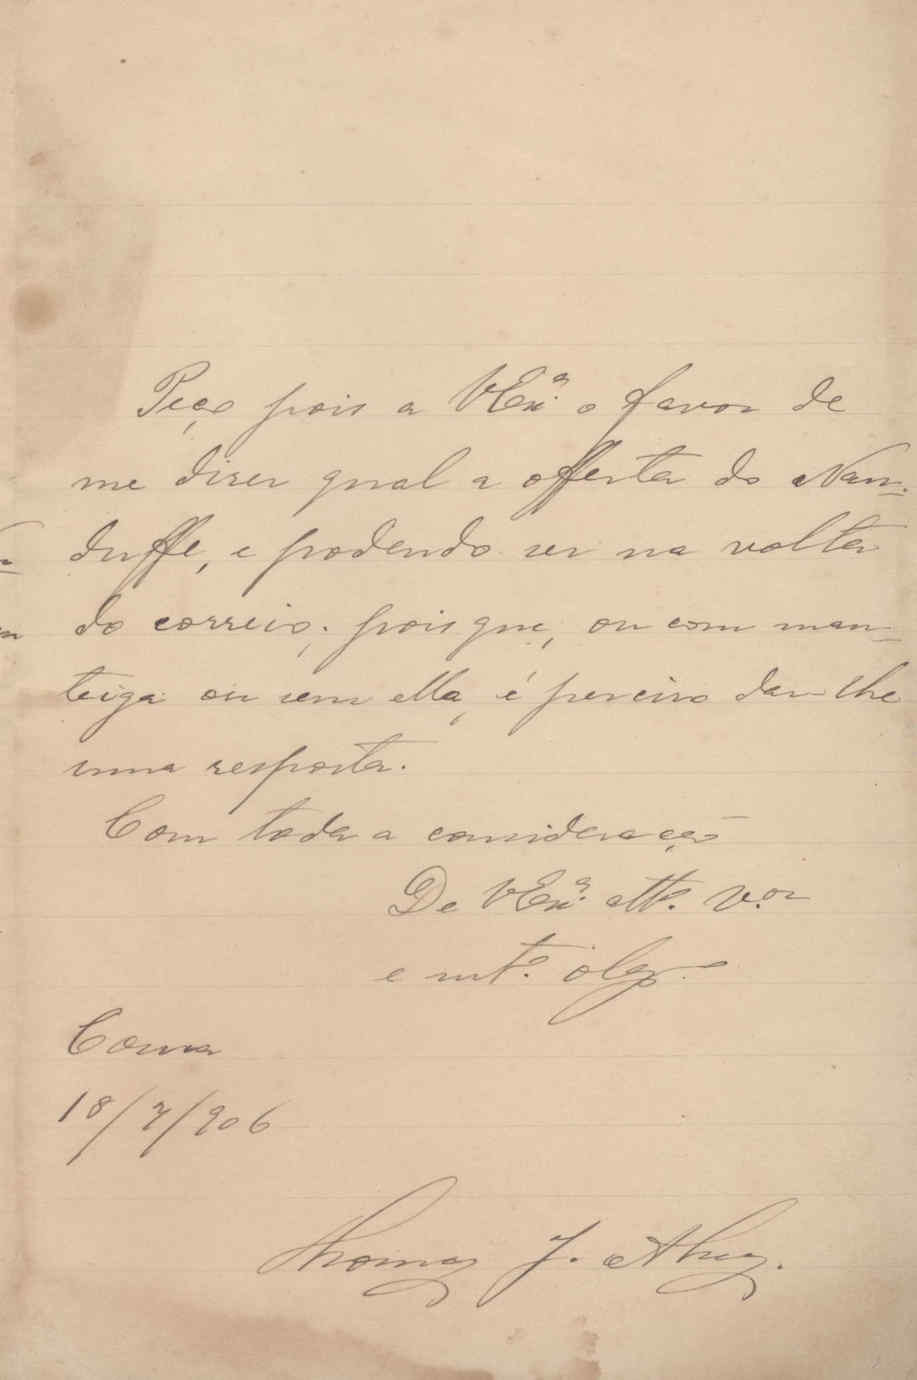 Peço pois a VEx.ª o favor de
me dizer qual a offerta do Nan-
duffe, e podendo ser na volta
do correio; pois que, ou com man-
teiga ou sem ella, é preciso dar-lhe
uma resposta.
Com toda a consideração
De VEx.ª att.º V.or
e mt.º obg.º
18/7/906
Thomaz J.